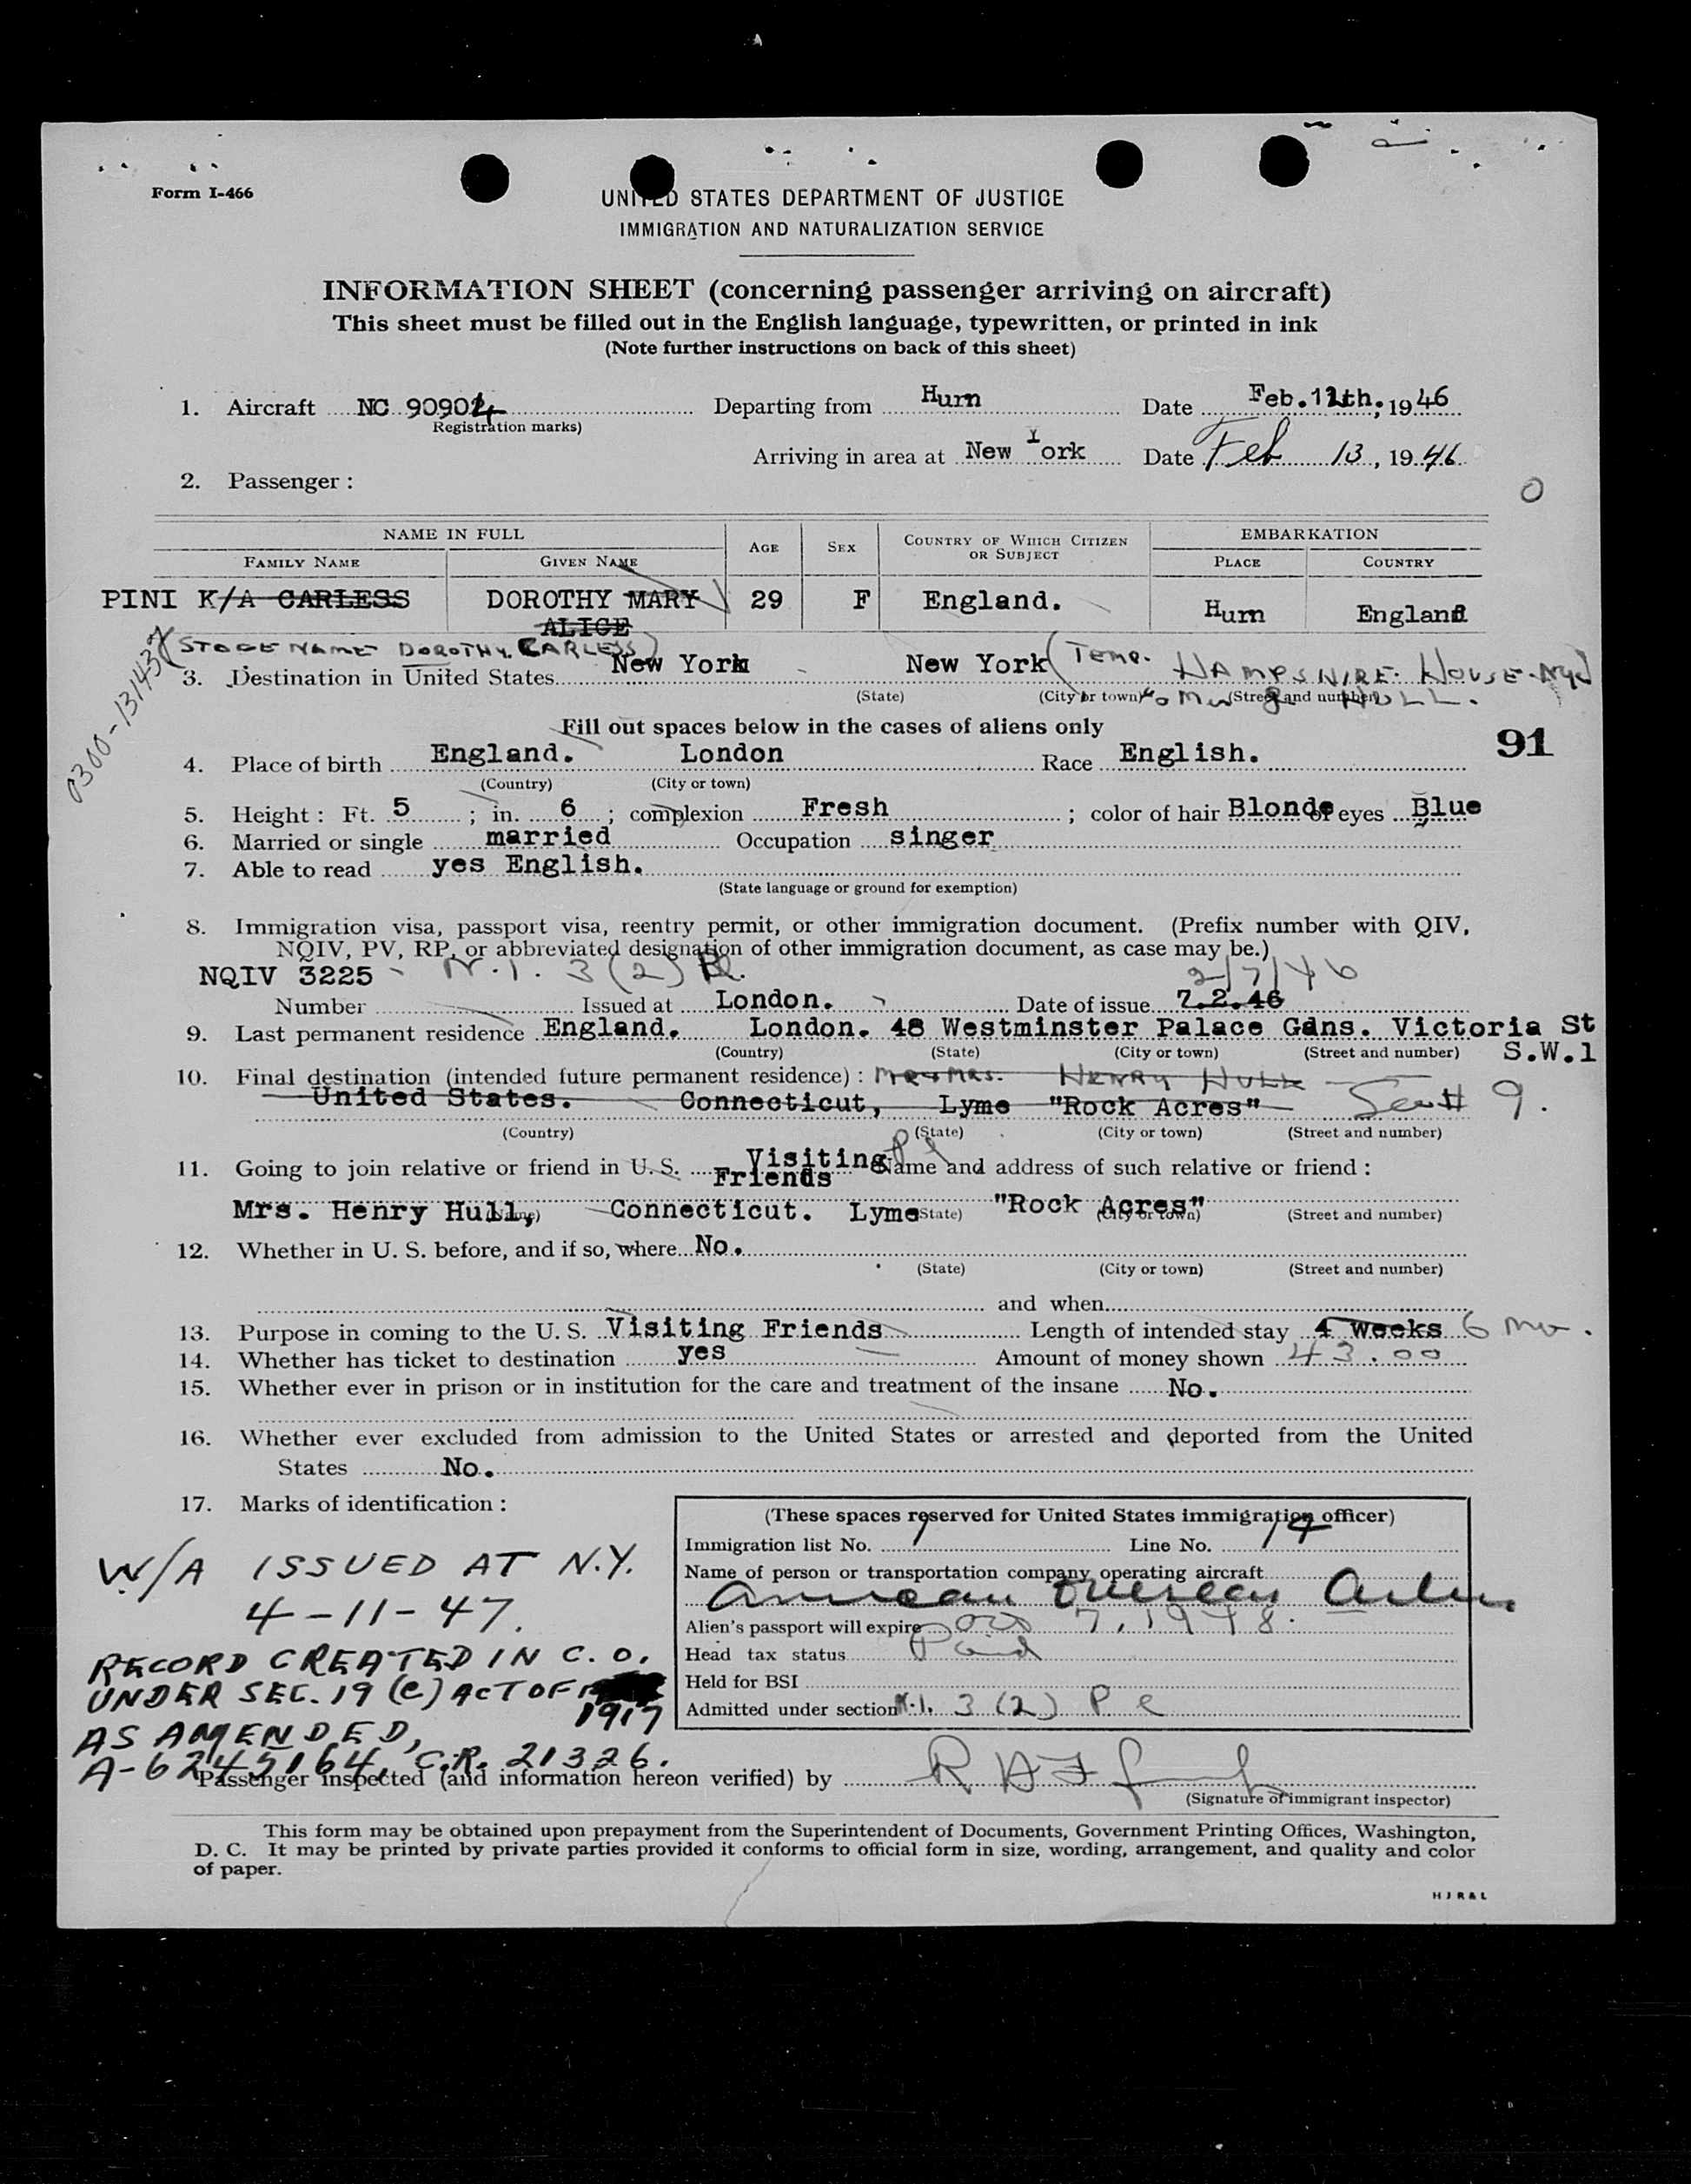 Form I-466
UNITED STATES DEPARTMENT OF JUSTICE
IMMIGRATION AND NATURALIZATION SERVICE
INFORMATION SHEET (concerning passenger arriving on aircraft)
This sheet must be filled out in the English language, typewritten, or printed in ink
(Note further instructions on back of this sheet)
1. Aircraft NC 90904 Departing from Hurn Date Feb. 12th, 1946
Registration marks)
Arriving in area at New York Date Feb 13, 1946
2. Passenger :
0
NAME IN FULL AGE SEX COUNTRY OF WHICH CITIZEN OR SUBJECT EMBARKATION
FAMILY NAME GIVEN NAME PLACE COUNTRY
PINI K/A CARLESS DOROTHY MARY 29 F England. Hurn England
ALICE
(STAGE NAME DOROTHY CARLESS)
0300-131437
3. Destination in United States New York New York (Temp. HAMPSHIRE HOUSE-NYC
(State) (City or town) (Street and number) HULL.
Fill out spaces below in the cases of aliens only
91
4. Place of birth England. London Race English.
(Country) (City or town)
5. Height : Ft. 5 ; in. 6 ; complexion Fresh ; color of hair Blonde of eyes Blue
6. Married or single married Occupation singer
7. Able to read yes English.
(State language or ground for exemption)
8. Immigration visa, passport visa, reentry permit, or other immigration document. (Prefix number with QIV,
NQIV, PV, RP, or abbreviated designation of other immigration document, as case may be.)
NQIV 3225 - N.I. 3(2) Pl. 2/7/46
Number Issued at London. Date of issue 7.2.46
9. Last permanent residence England. London. 48 Westminster Palace Gdns. Victoria St
(Country) (State) (City or town) (Street and number) S.W.1
10. Final destination (intended future permanent residence) : Mr & Mrs. HENRY HULL
United States. Connecticut, Lyme "Rock Acres" See # 9.
(Country) (State) (City or town) (Street and number)
11. Going to join relative or friend in U. S. Visiting Friends Name and address of such relative or friend :
Mrs. Henry Hull, Connecticut. Lyme "Rock Acres"
(Name) (State) (City or town) (Street and number)
12. Whether in U. S. before, and if so, where No.
(State) (City or town) (Street and number)
and when
13. Purpose in coming to the U. S. Visiting Friends Length of intended stay 4 weeks 6 mo.
14. Whether has ticket to destination yes Amount of money shown 43.00
15. Whether ever in prison or in institution for the care and treatment of the insane No.
16. Whether ever excluded from admission to the United States or arrested and deported from the United
States No.
17. Marks of identification :
W/A ISSUED AT N.Y.
4-11-47.
RECORD CREATED IN C.O.
UNDER SEC. 19 (c) ACT OF
1917
AS AMENDED,
A-6245164, C.R. 21326.
(These spaces reserved for United States immigration officer)
Immigration list No. 1 Line No. 14
Name of person or transportation company operating aircraft
American Overseas Airlines
Alien's passport will expire 7, 1948.
Head tax status Paid
Held for BSI
Admitted under section N.I. 3 (2) Pl
Passenger inspected (and information hereon verified) by
(Signature of immigrant inspector)
This form may be obtained upon prepayment from the Superintendent of Documents, Government Printing Offices, Washington,
D. C. It may be printed by private parties provided it conforms to official form in size, wording, arrangement, and quality and color
of paper.
HJR&L